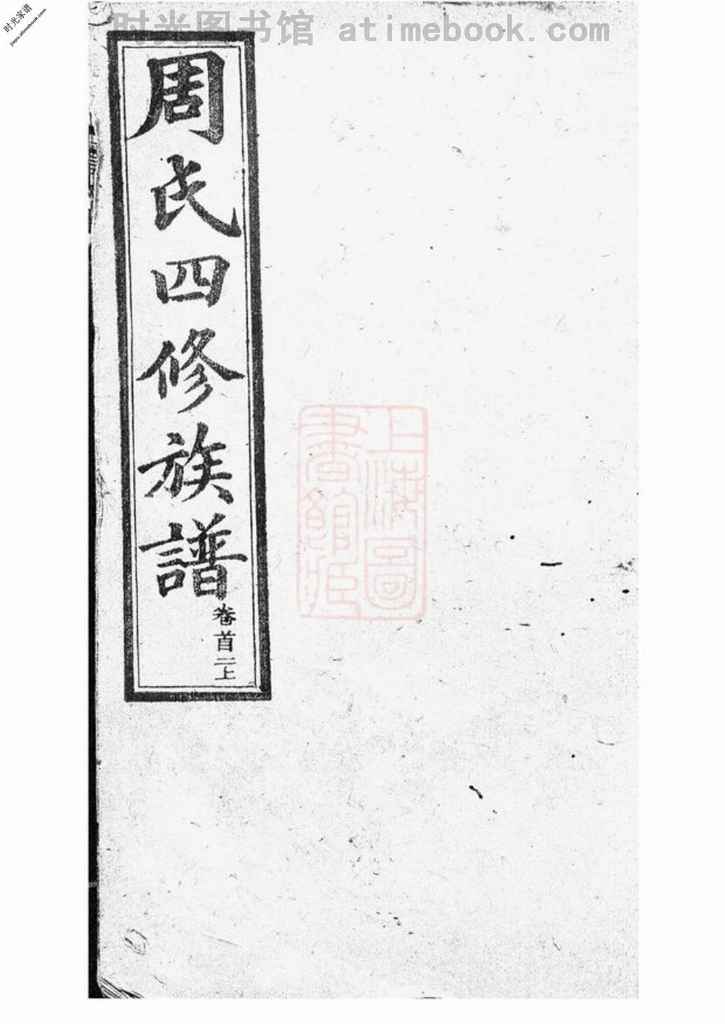 时光图书馆 atimebook.com
时光家谱
周氏四修族譜
卷首二上
上海圖
書館藏